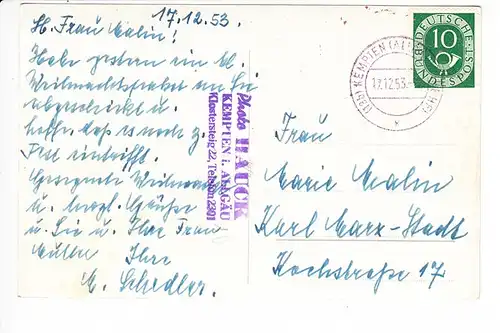 17.12.53.
H. Frau Malin!
Habe gestern ein kl.
Weihnachtspaket an Sie
abgeschickt u.
hoffe, daß es noch z.
Zeit eintrifft.
Gesegnete Weihnacht
u. herzl. Grüße
an Sie u. Ihre Frau
Mutter Ihre
M. Schedler.
Photo HAUCK
KEMPTEN i. ALLGÄU
Klostersteig 22, Telefon 2901
(13b) KEMPTEN (ALLGÄU)
17.12.53
DEUTSCHE
BUNDESPOST
10
Frau
Marie Malin
Karl Marx-Stadt
Kochstraße 17